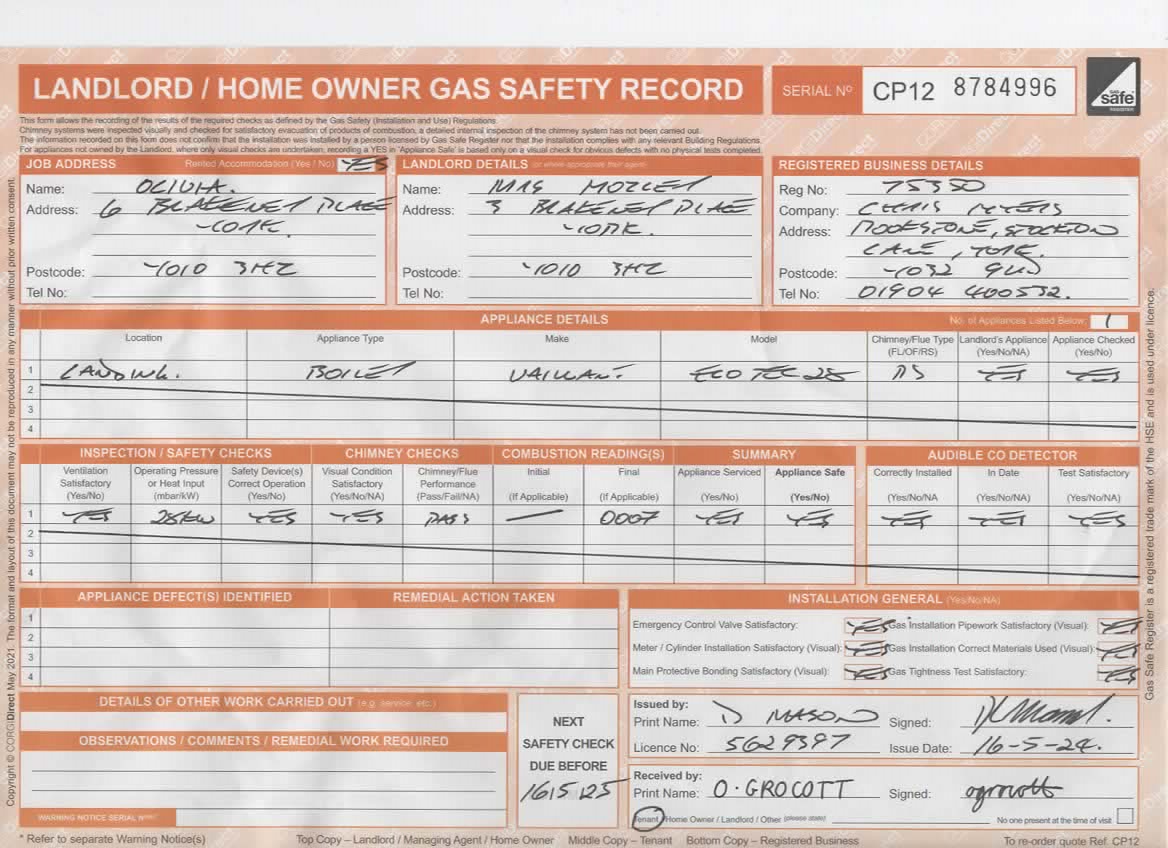 LANDLORD / HOME OWNER GAS SAFETY RECORD
SERIAL Nº CP12 8784996
gas safe REGISTER
This form allows the recording of the results of the required checks as defined by the Gas Safety (Installation and Use) Regulations.
Chimney systems were inspected visually and checked for satisfactory evacuation of products of combustion, a detailed internal inspection of the chimney system has not been carried out.
The information recorded on this form does not confirm that the installation was installed by a person licensed by Gas Safe Register nor that the installation complies with any relevant Building Regulations.
For appliances not owned by the Landlord, where only visual checks are undertaken, recording a YES in 'Appliance Safe' is based only on a visual check for obvious defects with no physical tests completed.
JOB ADDRESS Rented Accommodation (Yes / No) YES
Name: OLIVIA.
Address: 6 BLAKENEY PLACE
YORK.
Postcode: YO10 3HZ
Tel No:
LANDLORD DETAILS (or where appropriate their agent)
Name: MRS MOZLEY
Address: 3 BLAKENEY PLACE
YORK.
Postcode: YO10 3HZ
Tel No:
REGISTERED BUSINESS DETAILS
Reg No: 75350
Company: CHRIS MYERS
Address: STOCKTON
LANE, YORK.
Postcode: YO32
Tel No: 01904 400532.
APPLIANCE DETAILS
No. of Appliances Listed Below: 1
Location Appliance Type Make Model Chimney/Flue Type (FL/OF/RS) Landlord's Appliance (Yes/No/NA) Appliance Checked (Yes/No)
1 LANDING. BOILER VAILLANT. ECO TEC 28 RS YES YES
2
3
4
INSPECTION / SAFETY CHECKS CHIMNEY CHECKS COMBUSTION READING(S) SUMMARY AUDIBLE CO DETECTOR
Ventilation Satisfactory (Yes/No) Operating Pressure or Heat Input (mbar/kW) Safety Device(s) Correct Operation (Yes/No) Visual Condition Satisfactory (Yes/No/NA) Chimney/Flue Performance (Pass/Fail/NA) Initial (If Applicable) Final (If Applicable) Appliance Serviced (Yes/No) Appliance Safe (Yes/No) Correctly Installed (Yes/No/NA In Date (Yes/No/NA) Test Satisfactory (Yes/No/NA)
1 YES 28KW YES YES PASS — 0007 YES YES YES YES YES
2
3
4
APPLIANCE DEFECT(S) IDENTIFIED REMEDIAL ACTION TAKEN
1
2
3
4
INSTALLATION GENERAL (Yes/No/NA)
Emergency Control Valve Satisfactory: YES Gas Installation Pipework Satisfactory (Visual): YES
Meter / Cylinder Installation Satisfactory (Visual): YES Gas Installation Correct Materials Used (Visual): YES
Main Protective Bonding Satisfactory (Visual): YES Gas Tightness Test Satisfactory: YES
DETAILS OF OTHER WORK CARRIED OUT (e.g. service, etc.)
OBSERVATIONS / COMMENTS / REMEDIAL WORK REQUIRED
WARNING NOTICE SERIAL Nº
NEXT
SAFETY CHECK
DUE BEFORE
16/5/25
Issued by:
Print Name: D MASON Signed:
Licence No: 5629397 Issue Date: 16-5-24.
Received by:
Print Name: O. GROCOTT Signed: ogrocott
Tenant / Home Owner / Landlord / Other (please state) No one present at the time of visit
* Refer to separate Warning Notice(s) Top Copy – Landlord / Managing Agent / Home Owner Middle Copy – Tenant Bottom Copy – Registered Business To re-order quote Ref. CP12
Copyright © CORGIDirect May, 2021. The format and layout of this document may not be reproduced in any manner without prior written consent.
Gas Safe Register is a registered trade mark of the HSE and is used under licence.